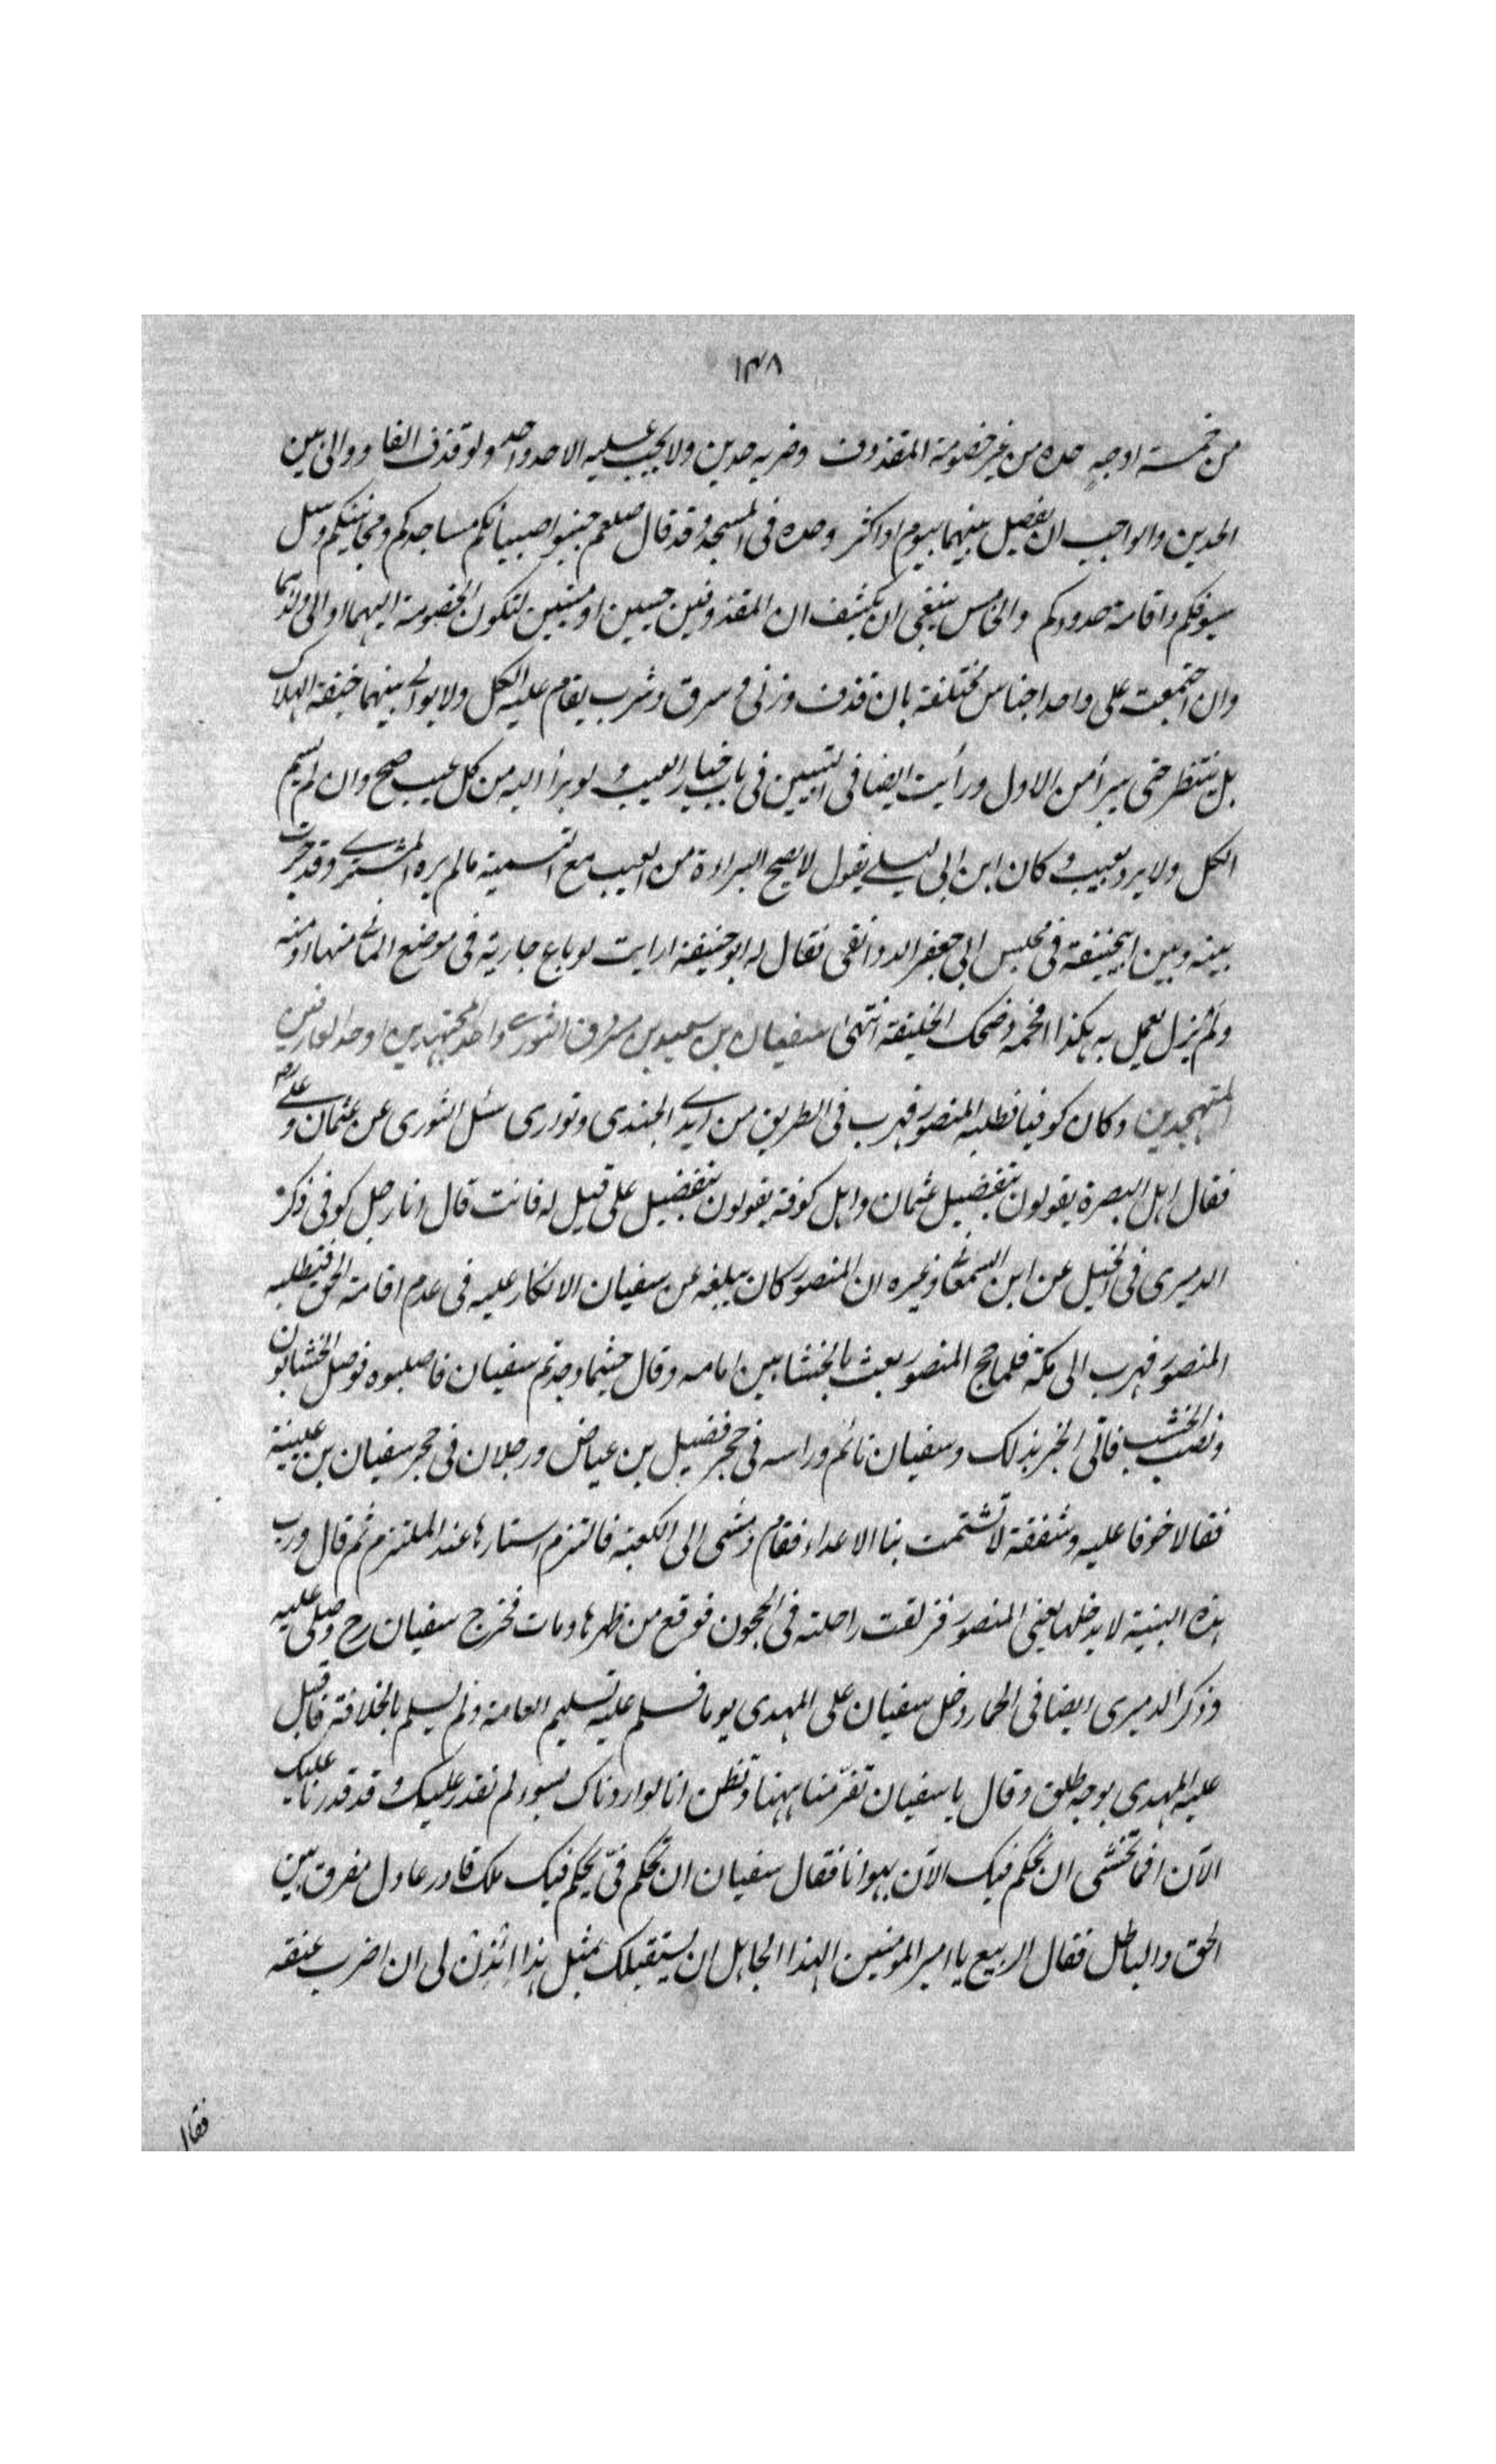 ١٣٨
من خمسة اوجه حده من غير خصومة المقذوف وضربه حدين ولا يجب عليه الا حد واحد ولو قذف الفا ووالى بين
الحدين والواجب ان يفصل بينهما بيوم او اكثر وحده فى المسجد وقد قال صلعم جنبوا صبيانكم مساجدكم ومجانينكم وسل
سيوفكم واقامة حدودكم والخامس ينبغى ان يكشف ان المقذوفين حيين او ميتين لتكون الخصومة اليهما او الى ولدهما
وان اجتمعت على واحد اجناس مختلفة بان قذف وزنى وسرق وشرب يقام عليه الكل ولا يوالى بينهما خيفة الهلاك
بل ينتظر حتى يبرأ من الاول ورأيت ايضا فى التبيين فى باب خيار العيب ولو برأ اليه من كل عيب صح وان لم يسم
الكل ولا يرد بعيب وكان ابن ابى ليلى يقول لا يصح البراءة من العيب مع التسمية ما لم يره المشترى وقد جرت
بينه وبين ابيحنيفة فى مجلس ابى جعفر الدوانقى فقال له ابو حنيفة ارايت لو باع جارية فى موضع المأتى منها او منه
ولم يزل يعمل به هكذا افحمه وضحك الخليفة انتهى سفيان بن سعيد بن مسروق الثورى واحد المجتهدين اوحد العارفين
المتهجدين وكان كوفيا فطلبه المنصور فهرب فى الطريق من ايدى الجندى وتوارى سئل الثورى عن عثمان وعلى رض
فقال اهل البصرة يقولون بتفضيل عثمان واهل كوفة يقولون بتفضيل على قيل له فانت قال انا رجل كوفى ذكر
الدميرى فى الخيل عن ابن السمعانى وغيره ان المنصور كان يبلغه عن سفيان الانكار عليه فى عدم اقامة الحق فتطلبه
المنصور فهرب الى مكة فلما حج المنصور بعث بالخشابين امامه وقال حيثما وجدتم سفيان فاصلبوه فوصل الخشابون
ونصب الخشب فاتى الخبر بذلك وسفيان نائم وراسه فى حجر فضيل بن عياض ورجلان فى حجر سفيان بن عيينة
فقالا خوفا عليه وشفقة لا تشتمت بنا الاعداء فقام ومشى الى الكعبة فالتزم استارها عند الملتزم ثم قال ورب
هذه البنية لا يدخلها يعنى المنصور فزلقت راحلته فى الحجون فوقع من ظهرها ومات فخرج سفيان رح وصلى عليه
وذكر الدميرى ايضا فى الحمار دخل سفيان على المهدى يوما فسلم عليه تسليم العامة ولم يسلم بالخلافة فاقبل
عليه المهدى بوجه طلق وقال يا سفيان تفر منا ههنا وتظن انا لو اردناك بسوء لم نقدر عليك وقد قدرنا عليك
الآن افما تخشى ان نحكم فيك الآن بهوانا فقال سفيان ان تحكم فى يحكم فيك ملك قادر عادل مفرق بين
الحق والباطل فقال الربيع يا امير المومنين الهذا الجاهل ان يستقبلك بمثل هذا ائذن لى ان اضرب عنقه
فقال